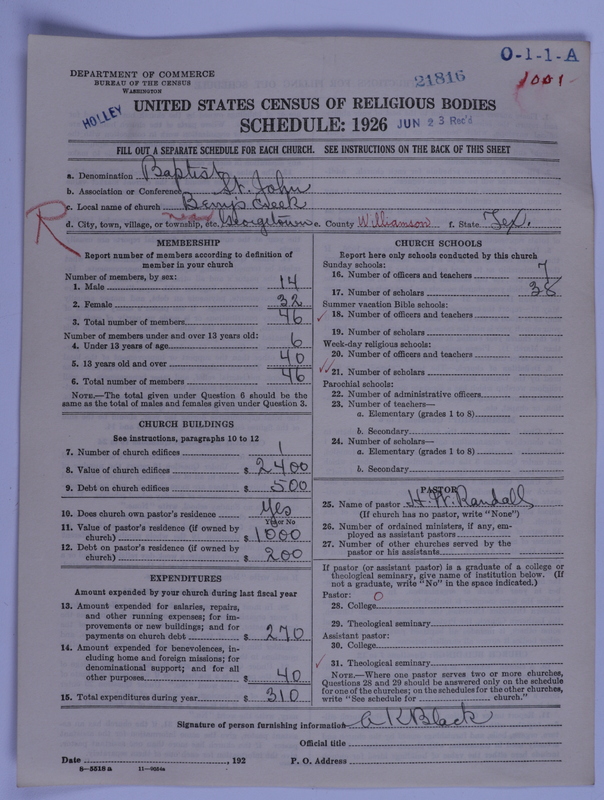 O-1-1-A
DEPARTMENT OF COMMERCE
BUREAU OF THE CENSUS
WASHINGTON
21816
1001
HOLLEY
UNITED STATES CENSUS OF RELIGIOUS BODIES
SCHEDULE: 1926 JUN 23 Rec'd
FILL OUT A SEPARATE SCHEDULE FOR EACH CHURCH. SEE INSTRUCTIONS ON THE BACK OF THIS SHEET
a. Denomination Baptist
b. Association or Conference St. John
c. Local name of church Berrys Creek
R
d. City, town, village, or township, etc. near Georgetown e. County Williamson f. State Tex.
MEMBERSHIP
Report number of members according to definition of
member in your church
Number of members, by sex:
1. Male 14
2. Female 32
3. Total number of members 46
Number of members under and over 13 years old:
4. Under 13 years of age 6
5. 13 years old and over 40
6. Total number of members 46
NOTE.—The total given under Question 6 should be the
same as the total of males and females given under Question 3.
CHURCH BUILDINGS
See instructions, paragraphs 10 to 12
7. Number of church edifices 1
8. Value of church edifices $ 2400
9. Debt on church edifices $ 500
10. Does church own pastor's residence Yes
Yes or No
11. Value of pastor's residence (if owned by
church) $ 1000
12. Debt on pastor's residence (if owned by
church) $ 200
EXPENDITURES
Amount expended by your church during last fiscal year
13. Amount expended for salaries, repairs,
and other running expenses; for im-
provements or new buildings; and for
payments on church debt $ 270
14. Amount expended for benevolences, in-
cluding home and foreign missions; for
denominational support; and for all
other purposes $ 40
15. Total expenditures during year $ 310
CHURCH SCHOOLS
Report here only schools conducted by this church
Sunday schools:
16. Number of officers and teachers 7
17. Number of scholars 38
Summer vacation Bible schools:
18. Number of officers and teachers
19. Number of scholars
Week-day religious schools:
20. Number of officers and teachers
21. Number of scholars
Parochial schools:
22. Number of administrative officers
23. Number of teachers—
a. Elementary (grades 1 to 8)
b. Secondary
24. Number of scholars—
a. Elementary (grades 1 to 8)
b. Secondary
PASTOR
25. Name of pastor H. W. Randall
(If church has no pastor, write "None")
26. Number of ordained ministers, if any, em-
ployed as assistant pastors
27. Number of other churches served by the
pastor or his assistants
If pastor (or assistant pastor) is a graduate of a college or
theological seminary, give name of institution below. (If
not a graduate, write "No" in the space indicated.)
Pastor: O
28. College
29. Theological seminary
Assistant pastor:
30. College
31. Theological seminary
NOTE.—Where one pastor serves two or more churches,
Questions 28 and 29 should be answered only on the schedule
for one of the churches; on the schedules for the other churches,
write "See schedule for church."
Signature of person furnishing information A K Black
Official title
Date , 192 P. O. Address
8—5518 a 11—9024a